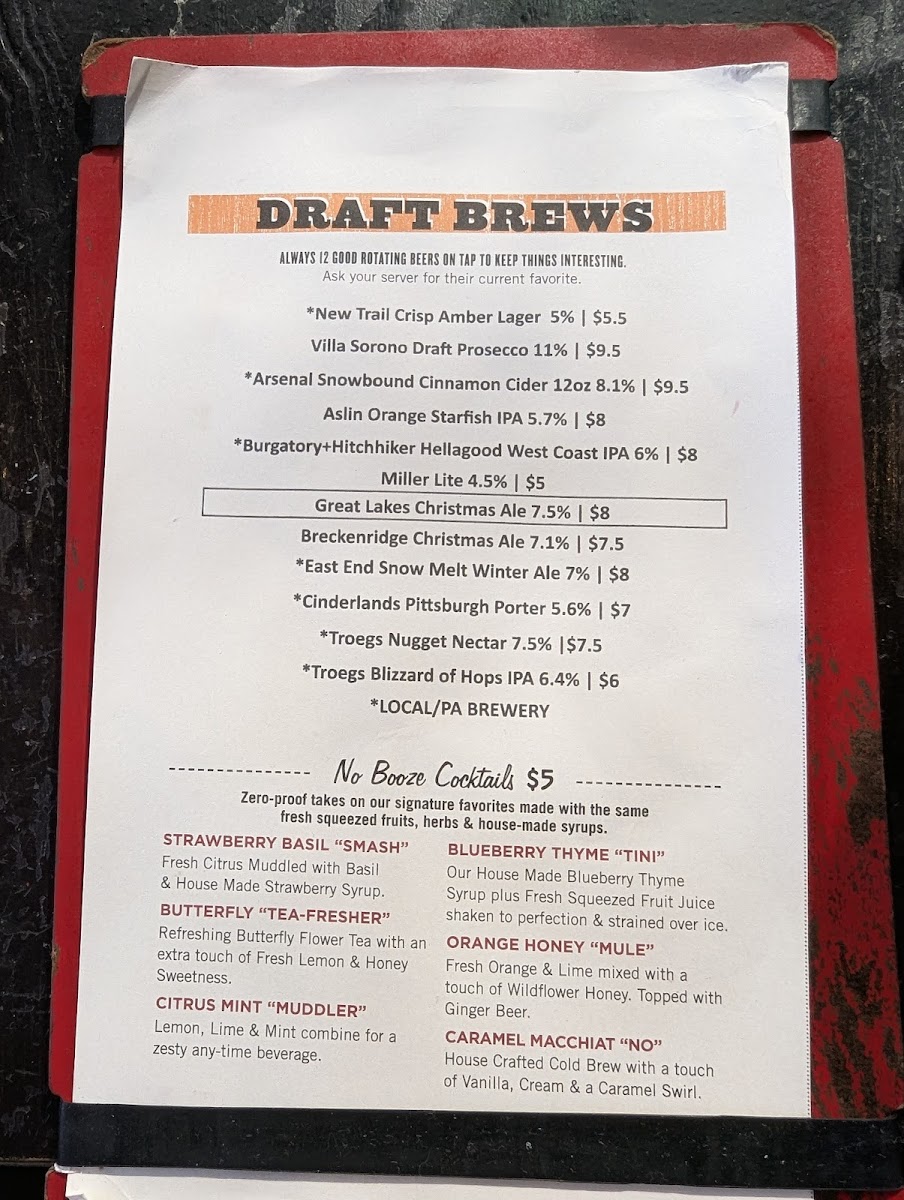 DRAFT BREWS
ALWAYS 12 GOOD ROTATING BEERS ON TAP TO KEEP THINGS INTERESTING.
Ask your server for their current favorite.
*New Trail Crisp Amber Lager 5% | $5.5
Villa Sorono Draft Prosecco 11% | $9.5
*Arsenal Snowbound Cinnamon Cider 12oz 8.1% | $9.5
Aslin Orange Starfish IPA 5.7% | $8
*Burgatory+Hitchhiker Hellagood West Coast IPA 6% | $8
Miller Lite 4.5% | $5
Great Lakes Christmas Ale 7.5% | $8
Breckenridge Christmas Ale 7.1% | $7.5
*East End Snow Melt Winter Ale 7% | $8
*Cinderlands Pittsburgh Porter 5.6% | $7
*Troegs Nugget Nectar 7.5% |$7.5
*Troegs Blizzard of Hops IPA 6.4% | $6
*LOCAL/PA BREWERY
No Booze Cocktails $5
Zero-proof takes on our signature favorites made with the same
fresh squeezed fruits, herbs & house-made syrups.
STRAWBERRY BASIL “SMASH”
Fresh Citrus Muddled with Basil
& House Made Strawberry Syrup.
BUTTERFLY “TEA-FRESHER”
Refreshing Butterfly Flower Tea with an
extra touch of Fresh Lemon & Honey
Sweetness.
CITRUS MINT “MUDDLER”
Lemon, Lime & Mint combine for a
zesty any-time beverage.
BLUEBERRY THYME “TINI”
Our House Made Blueberry Thyme
Syrup plus Fresh Squeezed Fruit Juice
shaken to perfection & strained over ice.
ORANGE HONEY “MULE”
Fresh Orange & Lime mixed with a
touch of Wildflower Honey. Topped with
Ginger Beer.
CARAMEL MACCHIAT “NO”
House Crafted Cold Brew with a touch
of Vanilla, Cream & a Caramel Swirl.